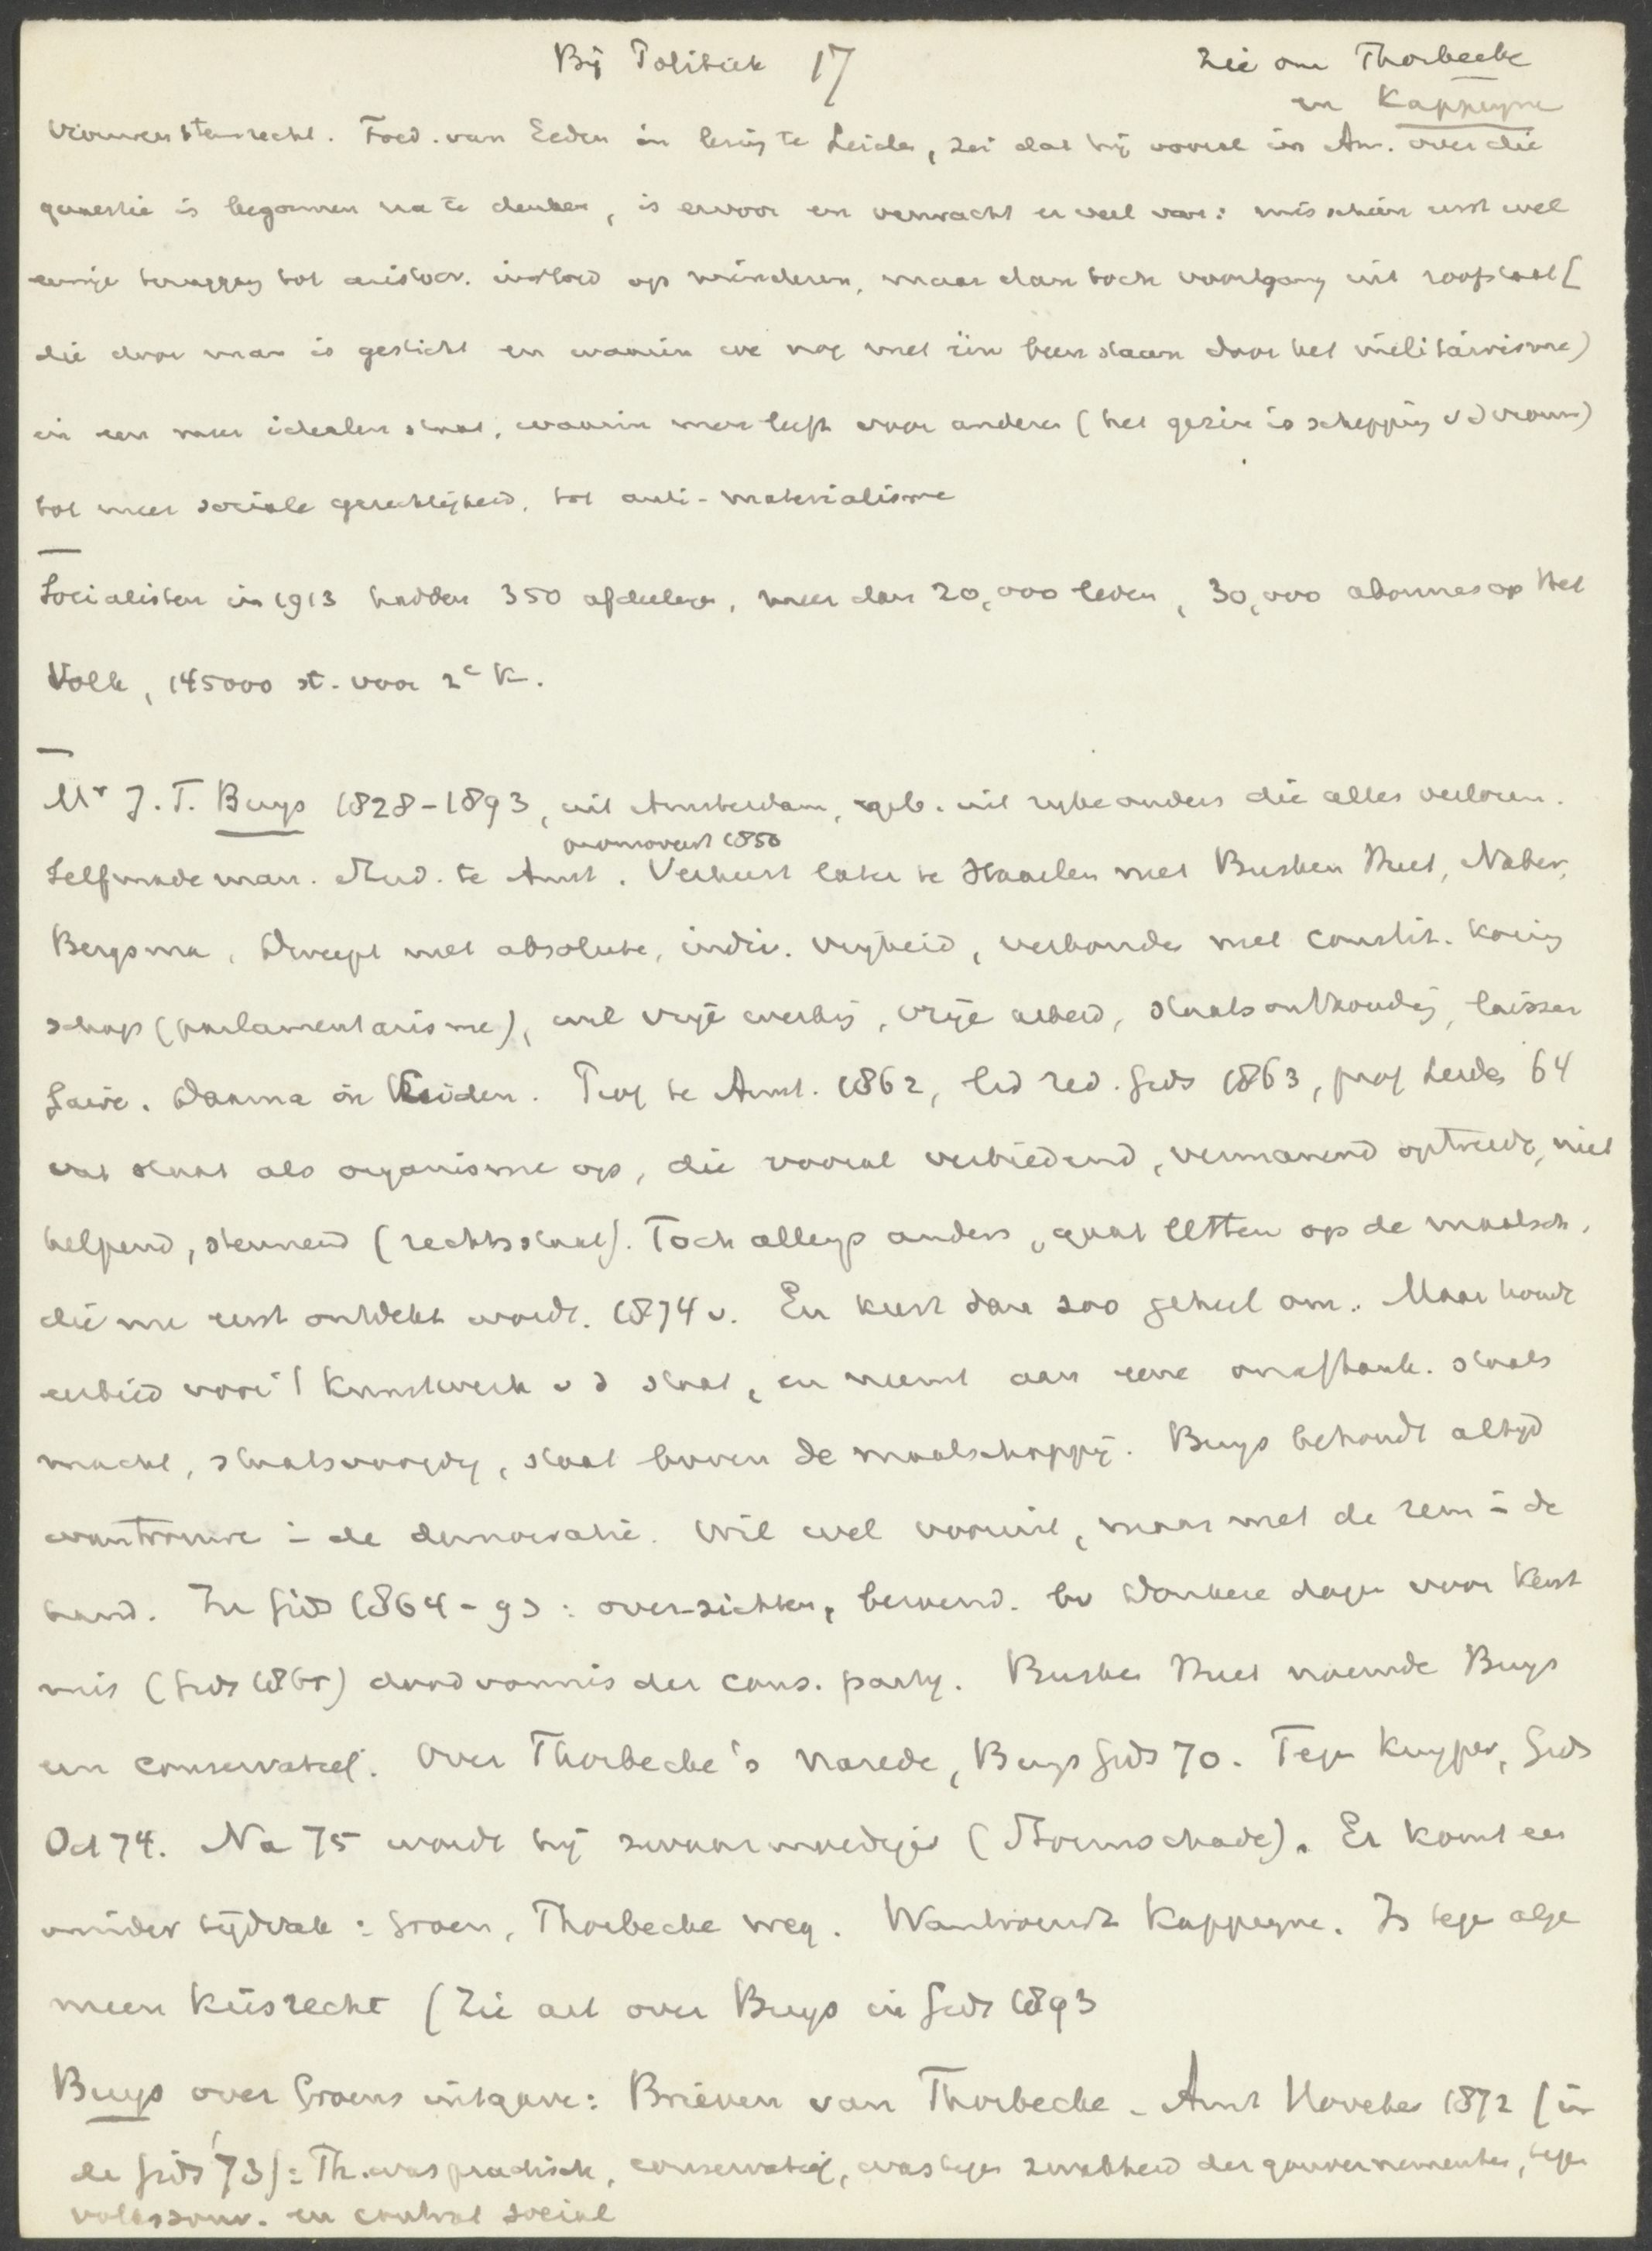 Bij Politiek 17
Zie om Thorbecke
en Kappeyne
Vrouwenstemrecht. Fred. van Eeden in lezing te Leiden, zei dat hij vooral in Am. over die
quaestie is begonnen na te denken, is ervoor en verwacht er veel van: misschien eerst wel
eenige teruggang tot aristocr. invloed op minderen, maar dan toch voortgang uit roofstaat (
die door man is gesticht en waarin we nog met één been staan door het militairisme)
in een meer idealen staat, waarin men leeft voor anderen (het gezin is schepping v d vrouw)
tot meer sociale gerechtigheid, tot anti-materialisme
Socialisten in 1913 hadden 350 afdeelingen, meer dan 20,000 leden, 30,000 abonnes op Het
Volk, 145000 st. voor 2e K.
Mr J. T. Buys 1828-1893, uit Amsterdam, geb. uit rijke ouders die alles verloren.
promoveert 1850
Selfmade man. Stud. te Amst. Verkeert later te Haarlem met Busken Huet, Naber,
Bergsma, Dweept met absolute, indiv. vrijheid, verbonden met constit. koning
schap (parlamentarisme), wil vrije werking, vrije arbeid, staatsonthouding, laisser
faire. Daarna in Leiden. Prof te Amst. 1862, lid red. Gids 1863, prof Leiden 64
vat staat als organisme op, die vooral verbiedend, vermanend optreedt, niet
helpend, steunend (rechtsstaat). Toch allengs anders, gaat letten op de maatsch,
die nu eerst ontdekt wordt. 1874 v. En keert dan zoo geheel om. Maar houdt
eerbied voor 't kunstwerk v d staat, en neemt aan eene onafhank. staats
macht, staatsvoogdij, staat boven de maatschappij. Buys behoudt altijd
wantrouwen in de democratie. Wil wel vooruit, maar met de rem in de
hand. In Gids 1864-93: overzichten, beroemd. bv Donkere dagen voor Kerst
mis (Gids 1865) doodvonnis der cons. partij. Busken Huet noemde Buys
een conservatief. Over Thorbecke's Narede, Buys Gids 70. Tegen Kuyper, Gids
Oct 74. Na 75 wordt hij zwaarmoediger (Stormschade). Er komt een
minder tijdvak: Groen, Thorbecke weg. Wantrouwt Kappeyne. Is tegen alge
meen kiesrecht (Zie art over Buys in Gids 1893
Buys over Groens uitgave: Brieven van Thorbecke. Amst November 1872 (in
de Gids '73): Th. was practisch, conservatief, was tegen zwakheid der gouvernementen, tegen
volkssouv. en contrat social